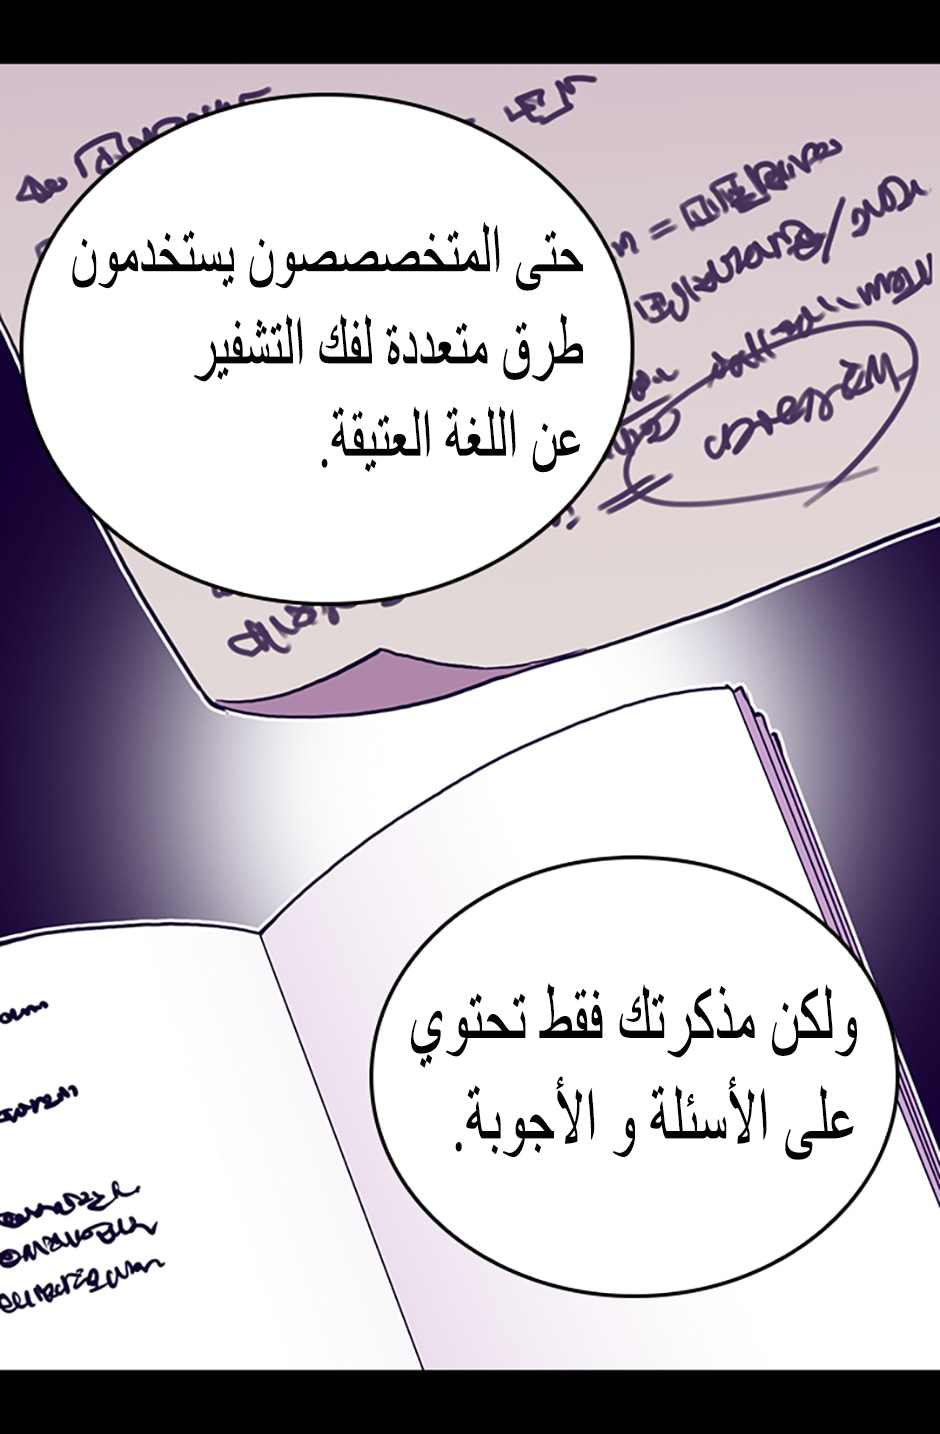 حتى المتخصصصون يستخدمون
طرق متعددة لفك التشفير
عن اللغة العتيقة.
ولكن مذكرتك فقط تحتوي
على الأسئلة و الأجوبة.